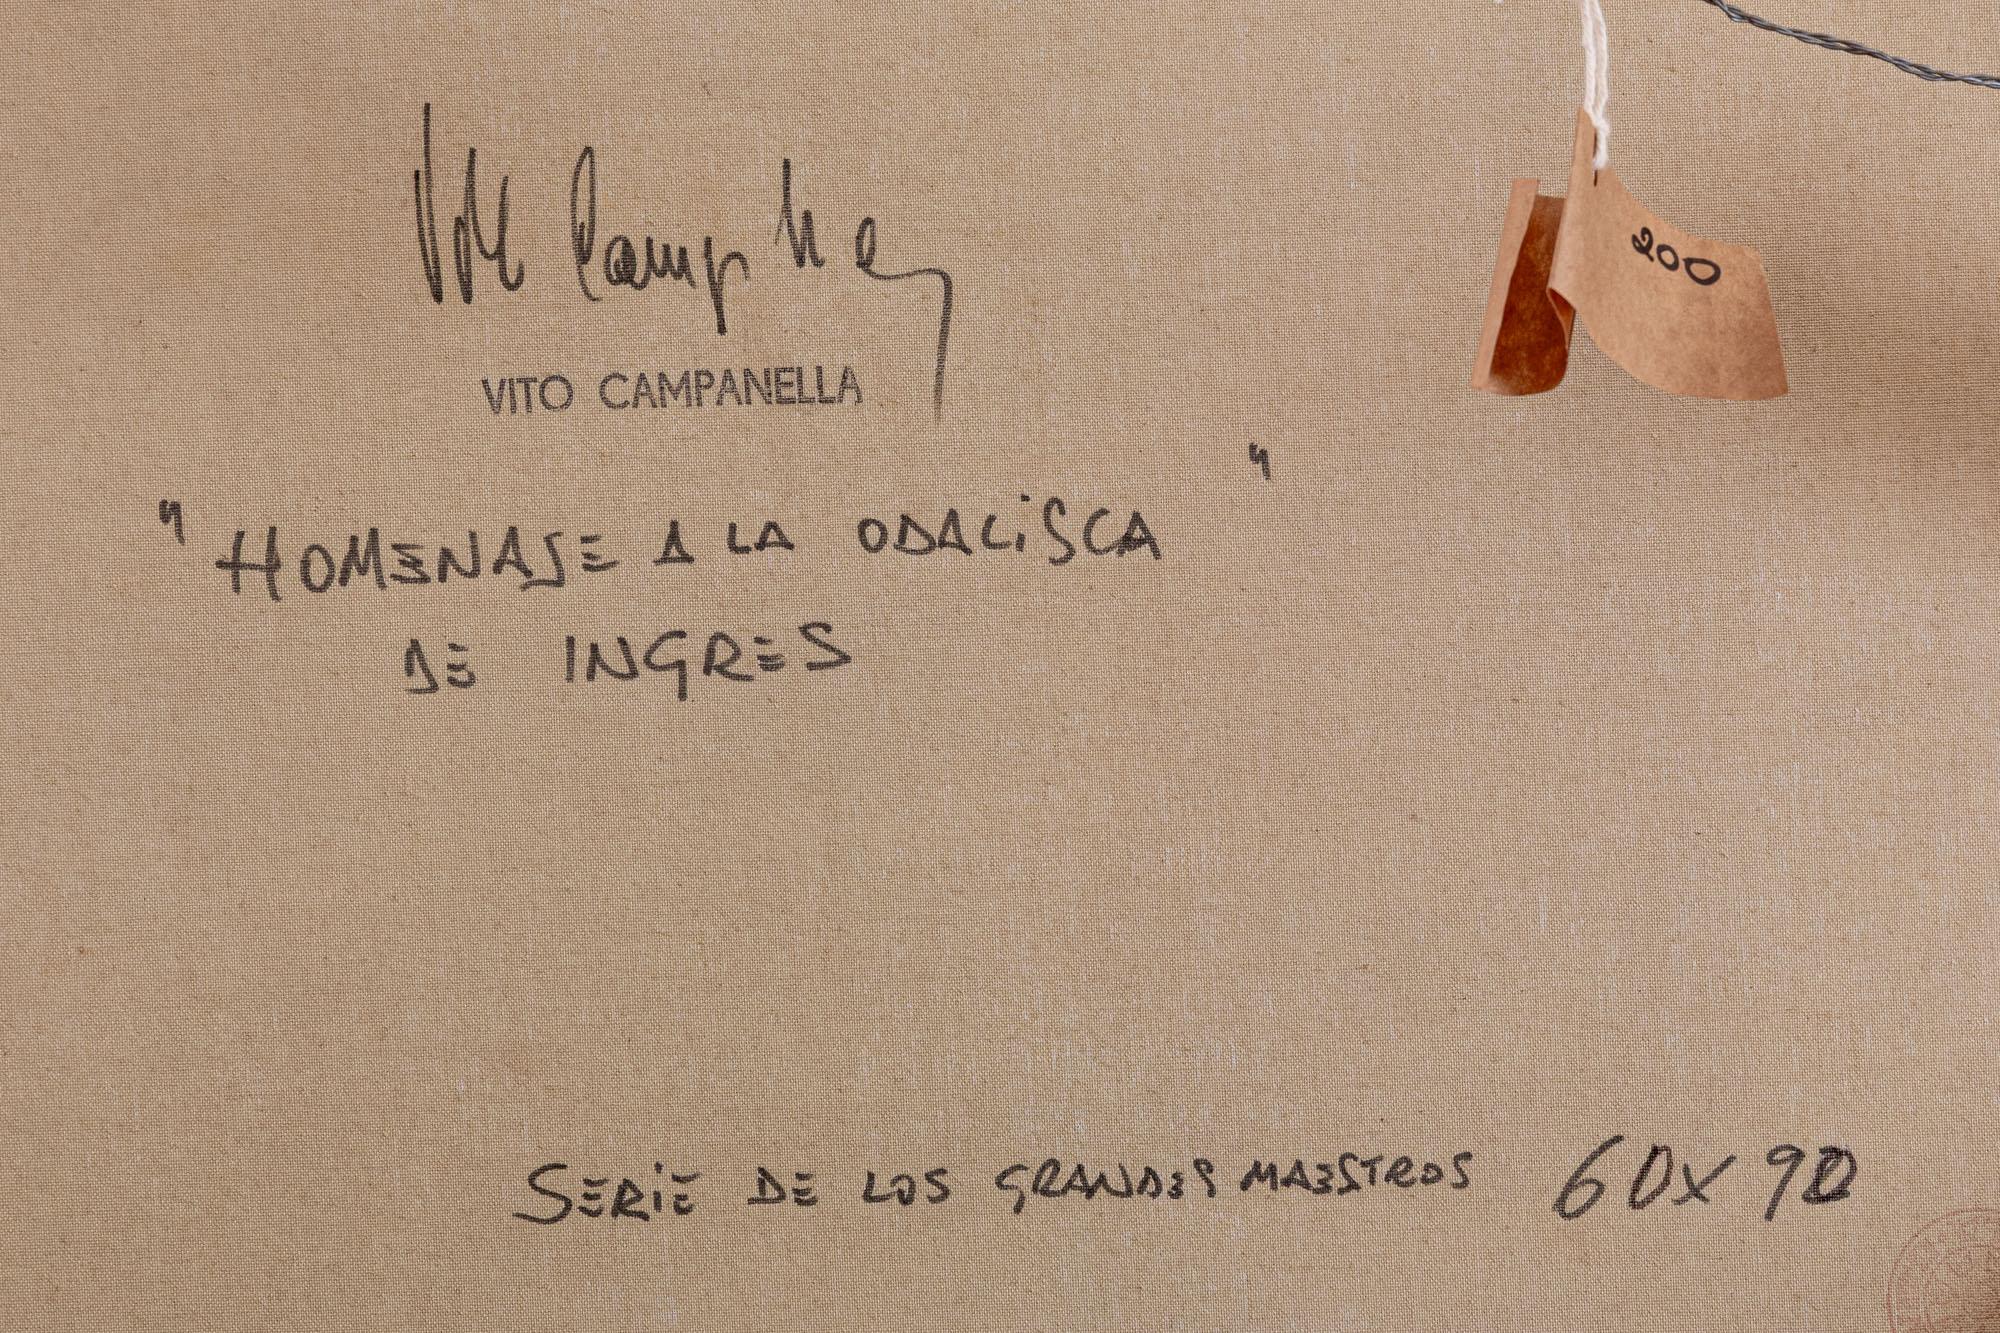 Vito Campanella
VITO CAMPANELLA
"HOMENAJE A LA ODALiSCA"
DE INGRES
SERiE DE LOS GRANDES MAESTROS 60x90
200